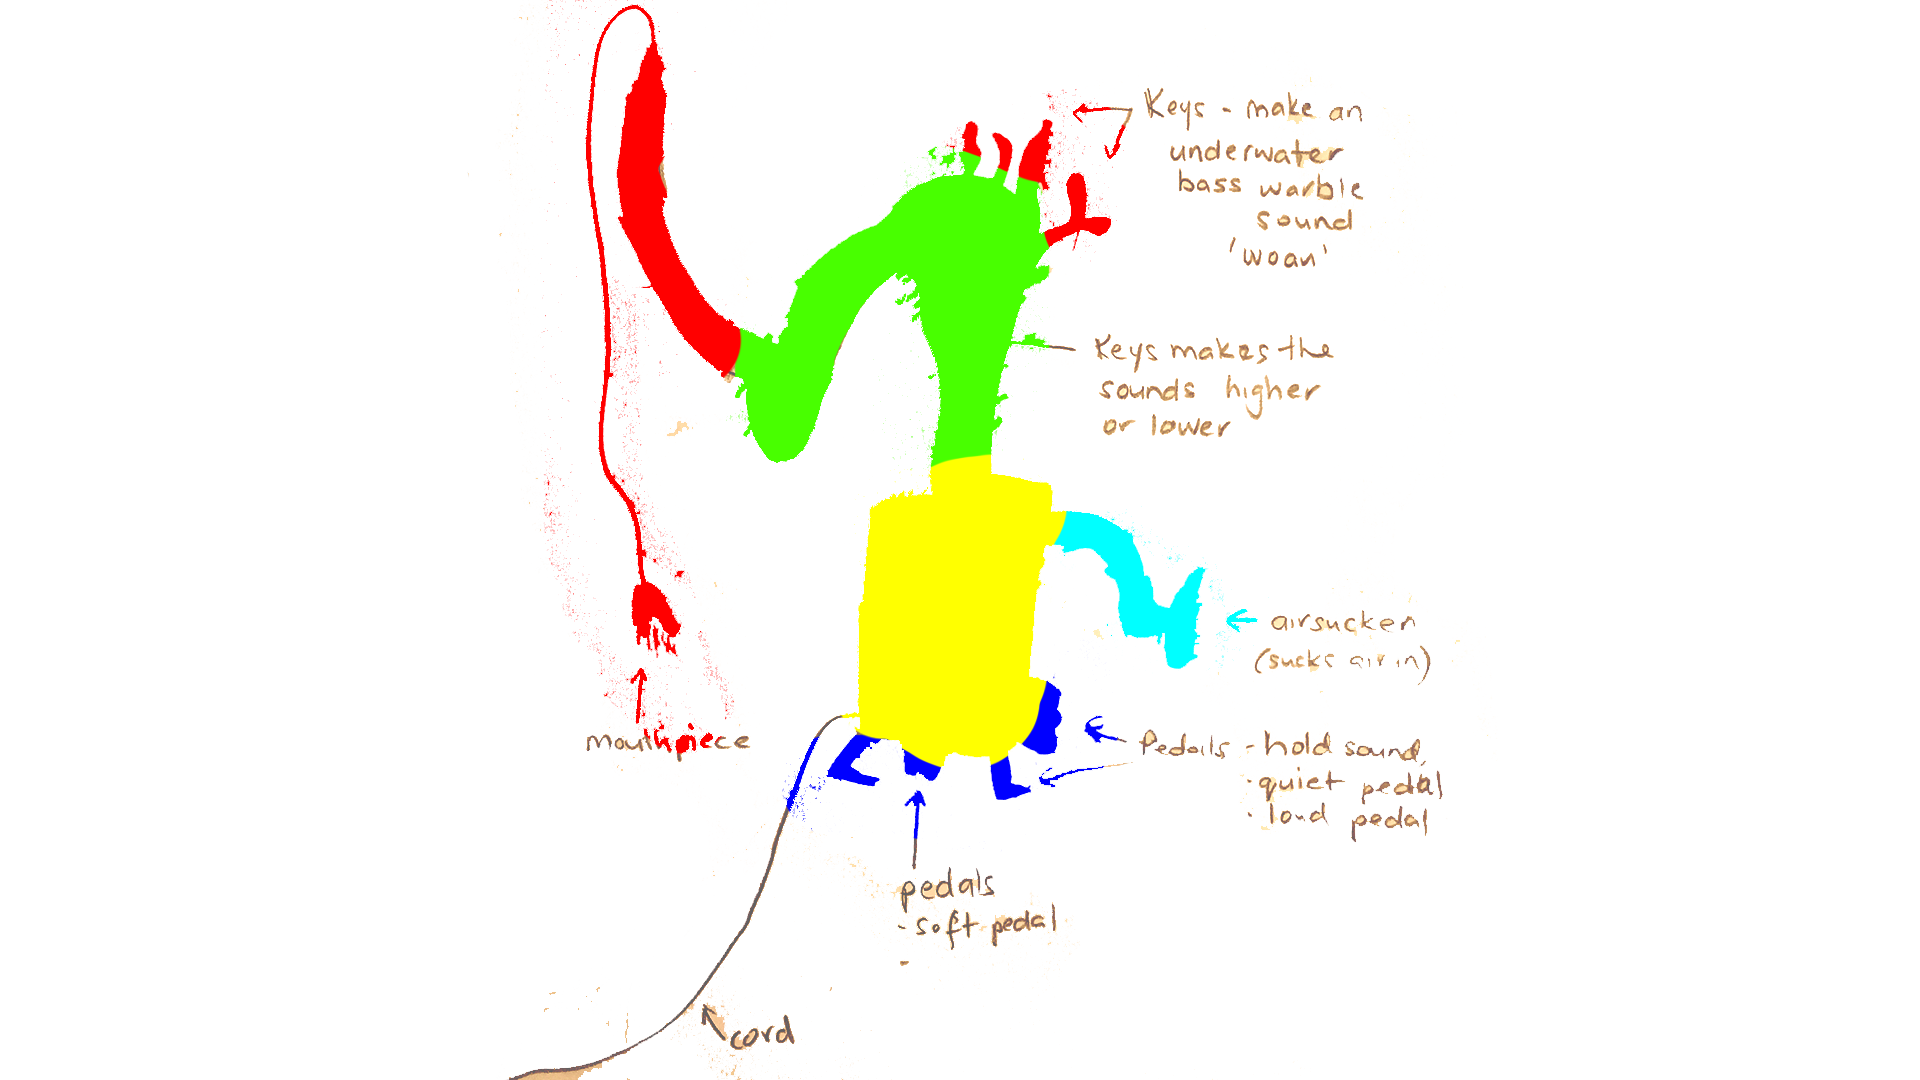 Keys - make an
underwater
bass warble
sound
'woan'
Keys makes the
sounds higher
or lower
airsucker
(sucks air in)
mouthpiece
Pedals - hold sound,
· quiet pedal
· loud pedal
pedals
- soft pedal
-
cord